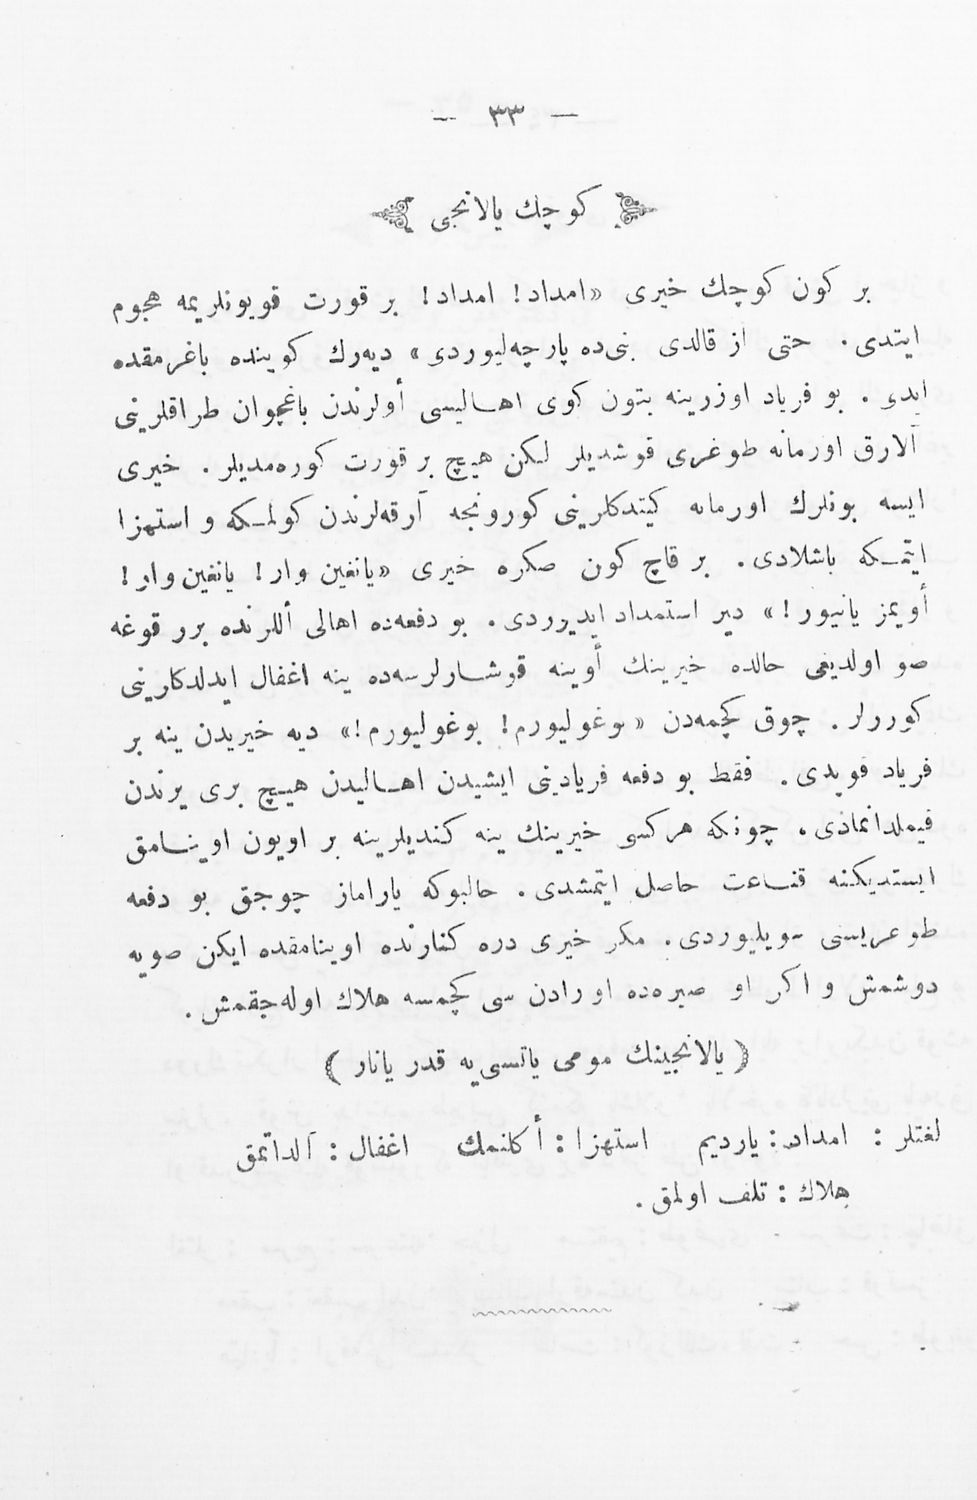 — ٣٣ —
كوچك يالانجى
بر كون كوچك خيرى «امداد! امداد! بر قورت قويونلريمه هجوم
ايتدى. حتى از قالدى بنى‌ده پارچه‌ليوردى» ديه‌رك كوينده باغرمقده
ايدى . بو فرياد اوزرينه بتون كوى اهاليسى أولرندن باغچوان طراقلرينى
آلارق اورمانه طوغرى قوشديلر لكن هيچ بر قورت كوره‌مديلر . خيرى
ايسه بونلرك اورمانه كيتدكلرينى كورونجه آرقه‌لرندن كولمكه و استهزا
ايتمكه باشلادى. بر قاچ كون صكره خيرى «يانغين وار! يانغين وار!
أويمز يانيور!» دير استمداد ايديوردى. بو دفعه‌ده اهالى أللرنده برر قوغه
صو اولديغى حالده خيرينك أوينه قوشارلرسه‌ده ينه اغفال ايدلدكارينى
كوررلر . چوق كچمه‌دن «بوغوليورم! بوغوليورم!» ديه خيريدن ينه بر
فرياد قوپدى. فقط بو دفعه فريادينى ايشيدن اهاليدن هيچ برى يرندن
قيملدانمادى. چونكه هركس خيرينك ينه كنديلرينه بر اويون اوينامق
ايستديكنه قناعت حاصل ايتمشدى. حالبوكه ياراماز چوجق بو دفعه
طوغريسنى سويليوردى. مكر خيرى دره كنارنده اوينامقده ايكن صويه
دوشمش و اكر او صيره‌ده اورادن برى كچمسه هلاك اوله‌جقمش.
( يالانجينك مومى ياتسى‌يه قدر يانار )
لغتلر : امداد: يارديم استهزا: أكلنمك اغفال: آلداتمق
هلاك: تلف اولمق.